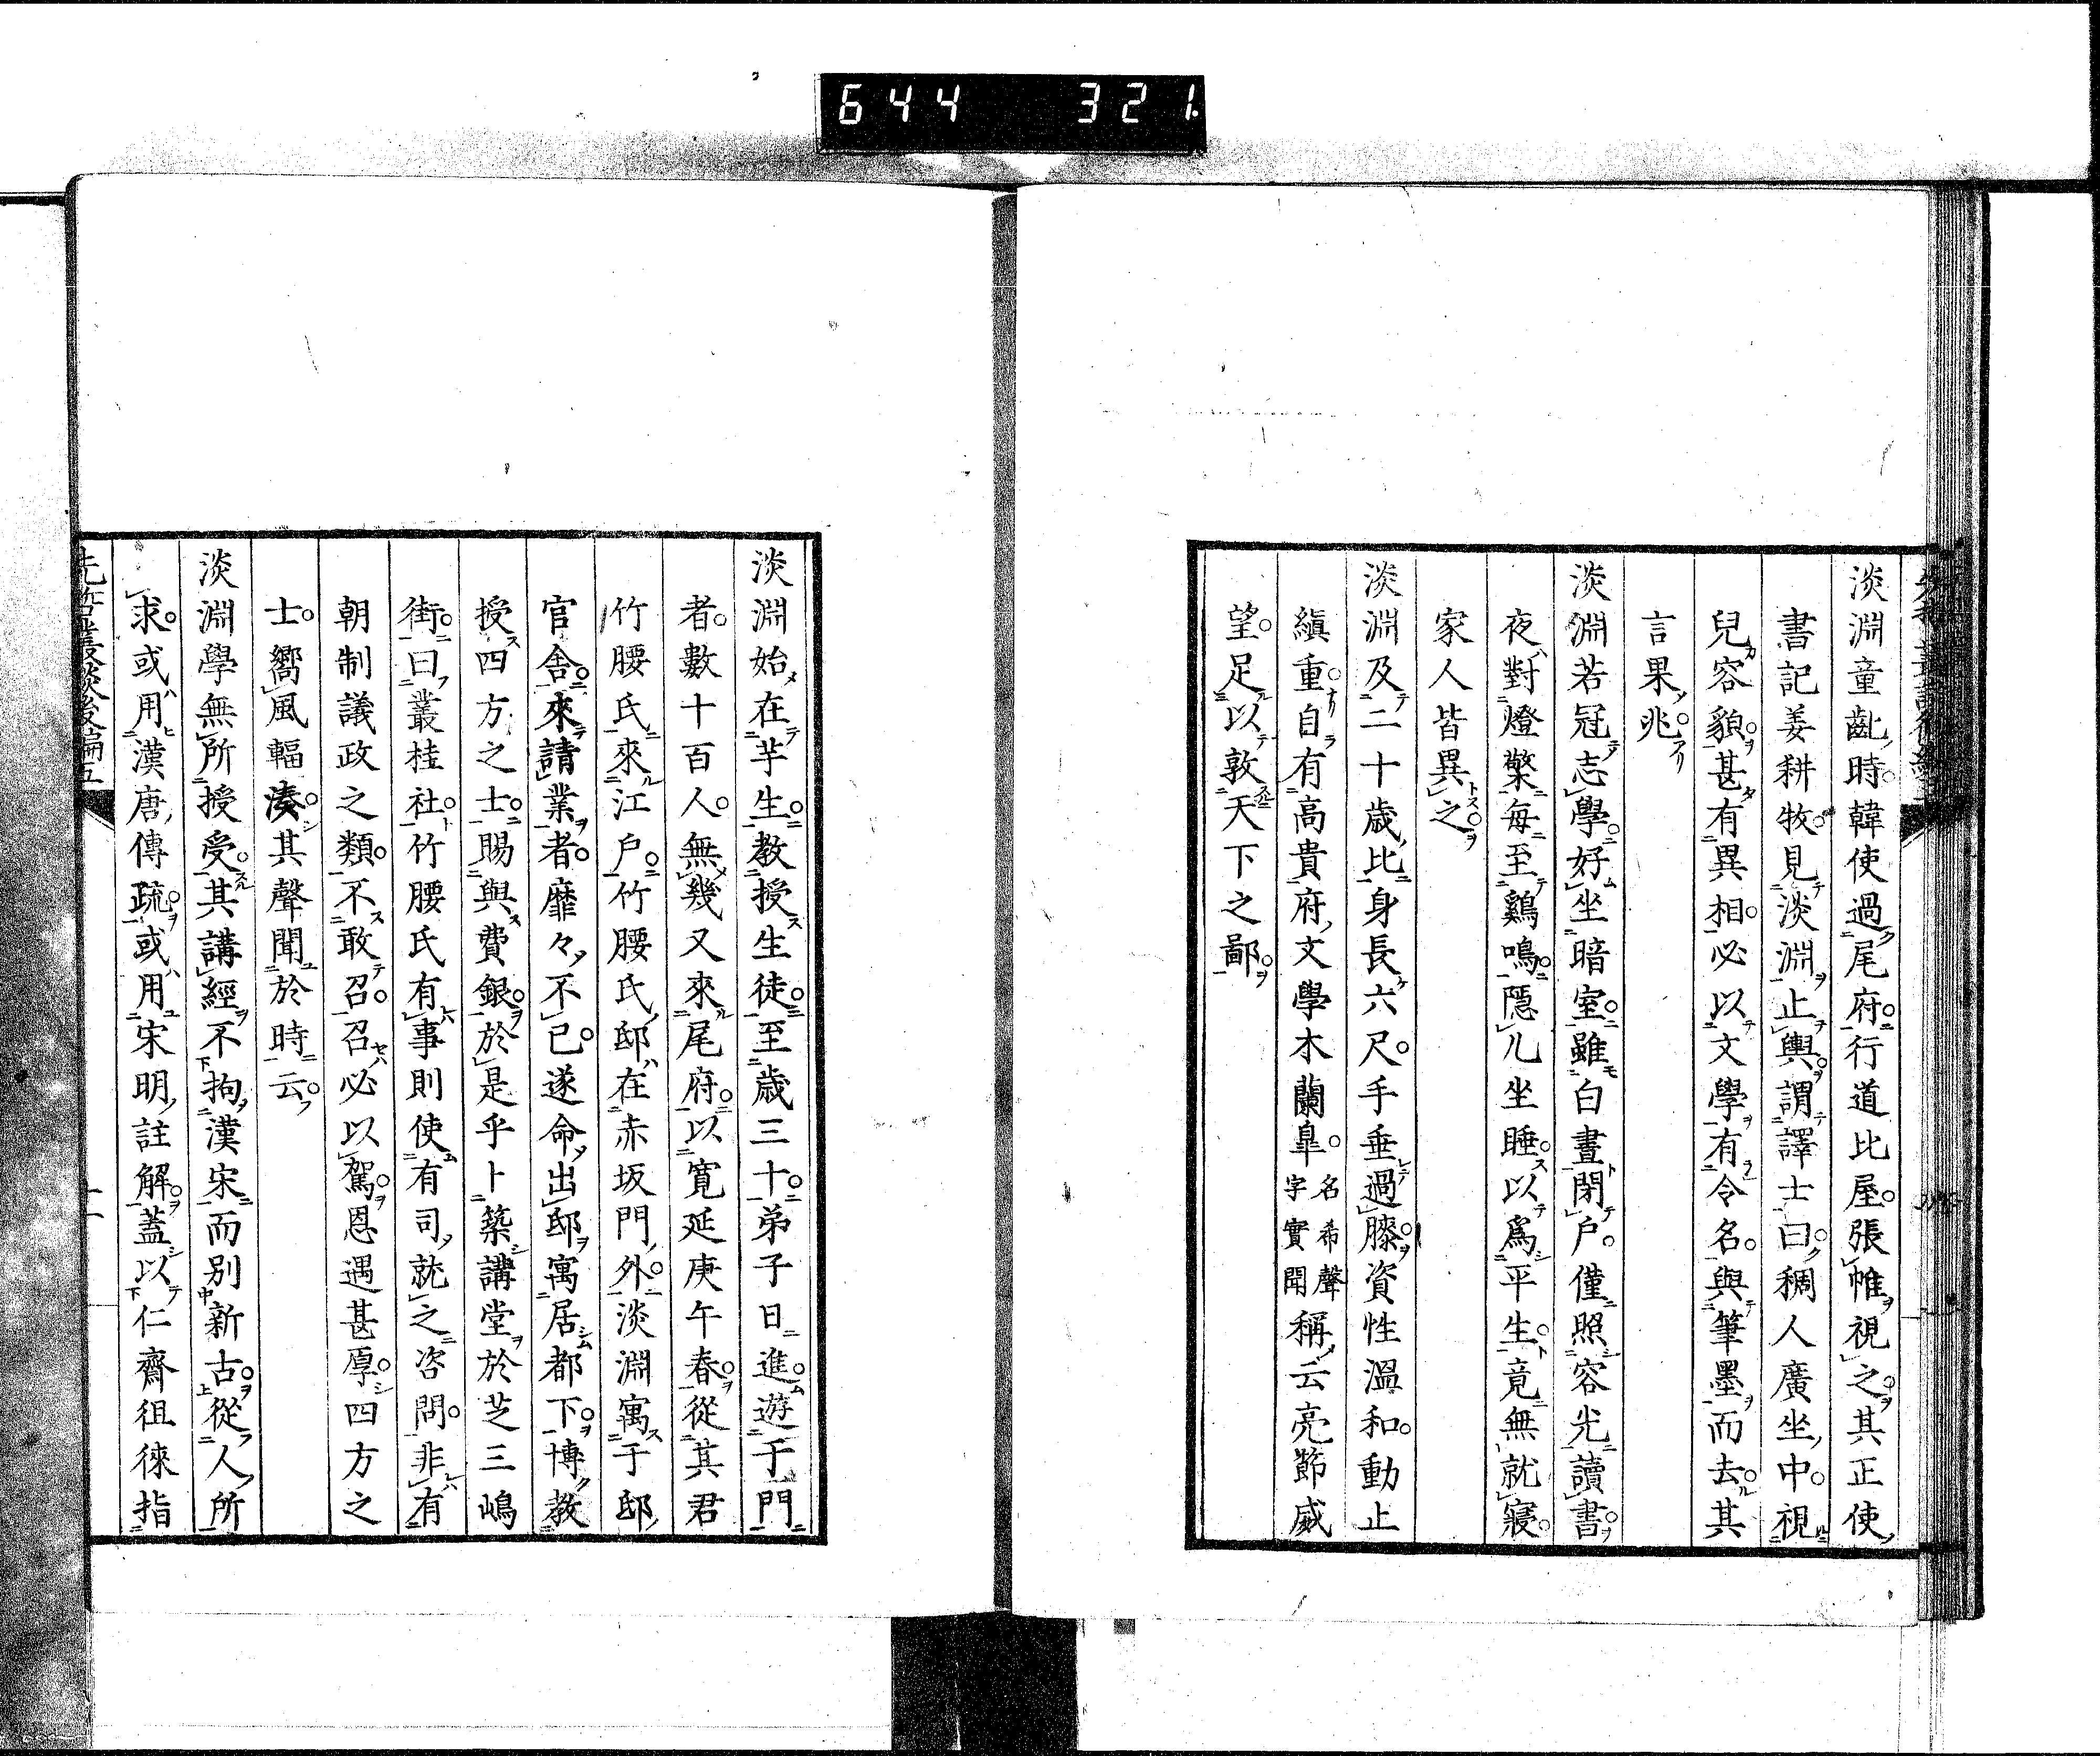 644 321
淡淵童齔時韓使過尾府行道比屋張帷視之其正使
書記姜耕牧見淡淵止輿謂譯士曰稠人廣坐中視
兒容貌甚有異相必以文學有令名與筆墨而去其
言果兆
淡淵若冠志學好坐暗室雖白晝閉戶僅照容光讀書
夜對燈檠每至鷄鳴隱几坐睡以爲平生竟無就寢
家人皆異之
淡淵及二十歲比身長六尺手垂過膝資性溫和動止
縝重自有高貴府文學木蘭皐名希聲字實聞稱云亮節威
望足以敦天下之鄙
淡淵始在芋生教授生徒至歲三十弟子日進遊于門
者數十百人無幾又來尾府以寬延庚午春從其君
竹腰氏來江戶竹腰氏邸在赤坂門外淡淵寓于邸
官舍來請業者靡々不已遂命出邸寓居都下博教
授四方之士賜與費銀於是乎卜築講堂於芝三嶋
街曰叢桂社竹腰氏有事則使有司就之咨問非有
朝制議政之類不敢召召必以駕恩遇甚厚四方之
士嚮風輻湊其聲聞於時云
淡淵學無所授受其講經不拘漢宋而別新古從人所
求或用漢唐傳疏或用宋明註解蓋以仁齋徂徠指
先哲叢談後編五